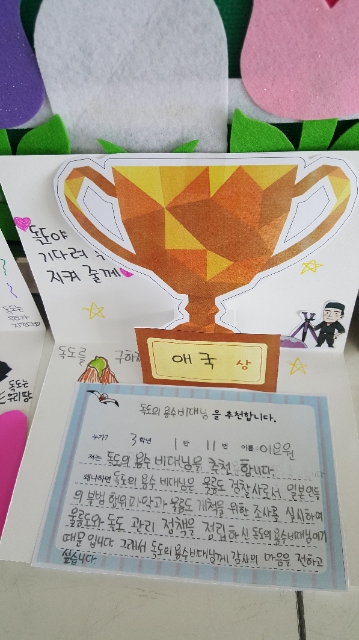 독도야
기다려
지켜 줄게
독도를 구하
애국상
독도의용수비대님을 추천합니다.
누가? 3학년 1반 11번 이름: 이은원
저는 독도의용수비대님을 추천 합니다.
왜냐하면 독도의용수비대님은 울릉도 경찰서로서, 일본인들
의 불법 행위 파악과 울릉도 개척을 위한 조사를 실시하여
울릉도와 독도 관리 정책을 정립하신 독도의용수비대님이기
때문입니다. 그래서 독도의용수비대님께 감사의 마음을 전하고
싶습니다
독도는
독도는
우리땅